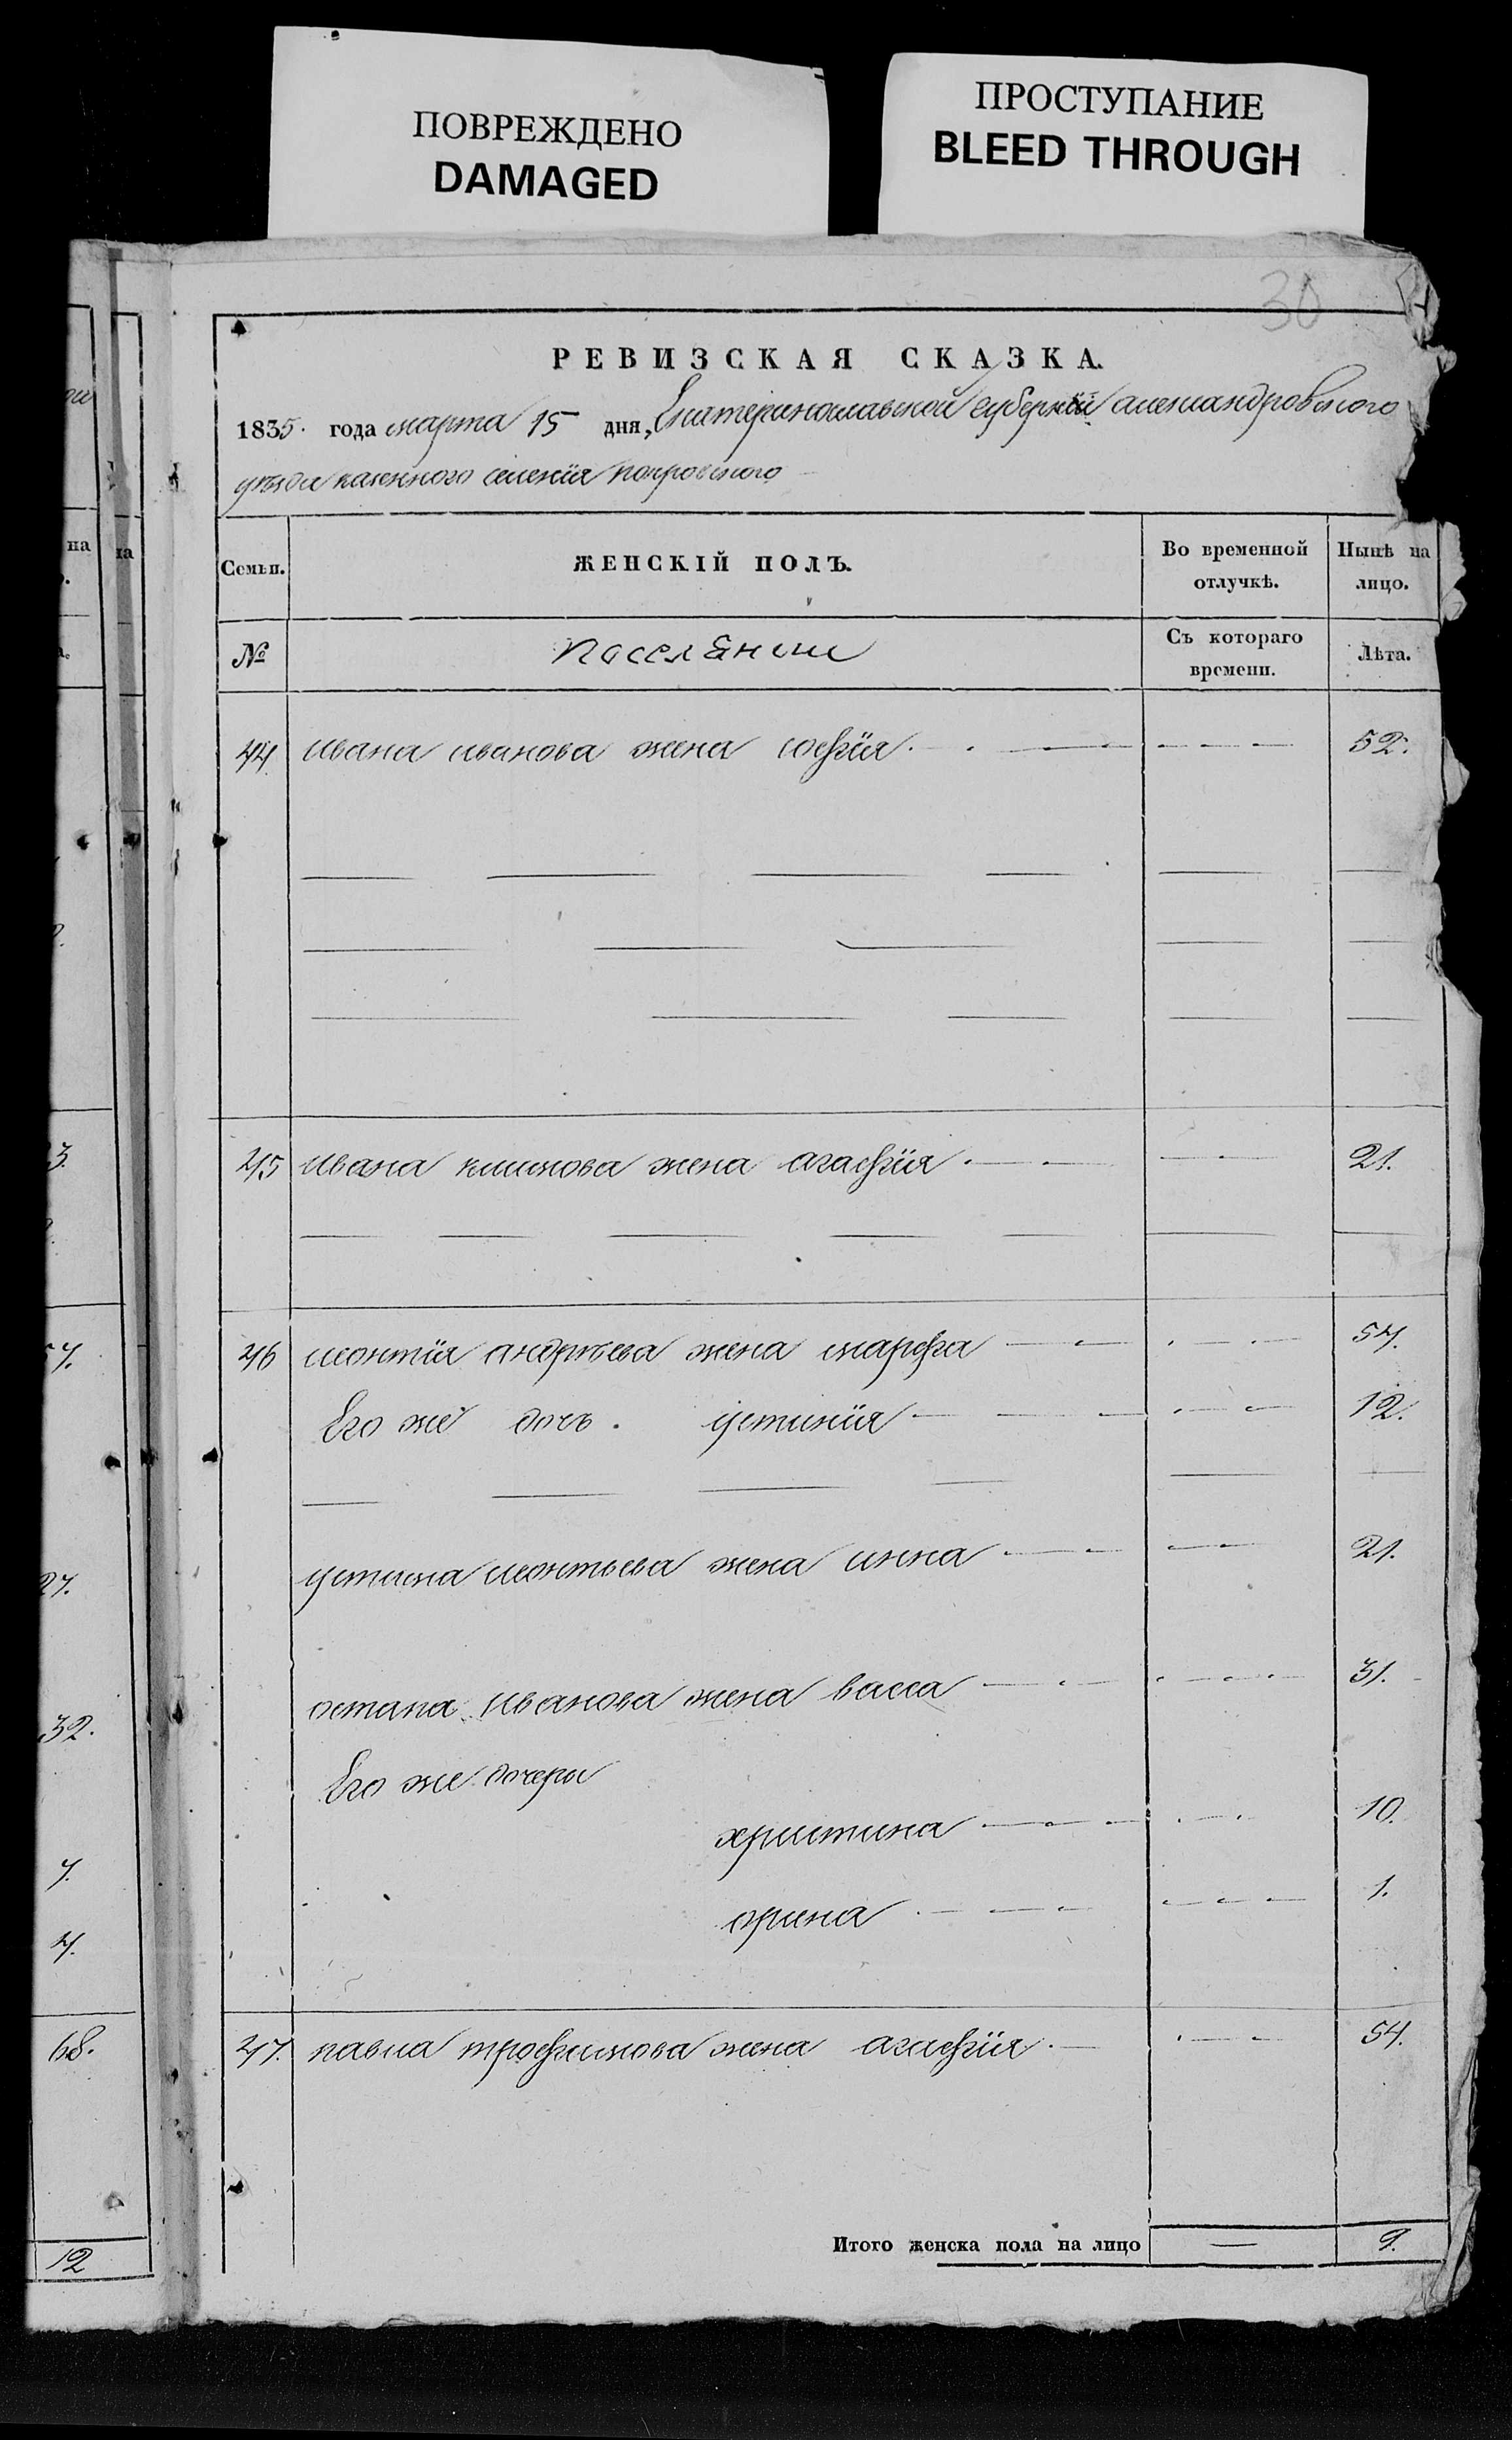 ПОВРЕЖДЕНО
DAMAGED
ПРОСТУПАНИЕ
BLEED THROUGH
30
РЕВИЗСКАЯ СКАЗКА.
1835. года марта 15 дня, Екатеринославской губернїи александровского
уѣзда казенного селенїя покровского
Семьи. ЖЕНСКІЙ ПОЛЪ. Во временной отлучкѣ. Нынѣ на лицо.
№ поселянки Съ котораго времени. Лѣта.
44. ивана иванова жена софїя. 52.
45 ивана климова жена агафїя. 21.
46 леонтїя андрѣева жена марфа 54.
Его же дочь. устинїя 12.
устина леонтьева жена анна 21.
остапа иванова жена васса 31.
Его же дочери
христина 10.
орина 1.
47. павла трофимова жена агафїя. 54.
Итого женска пола на лицо — 9.
на
на
3.
27.
32.
7.
4.
68.
12